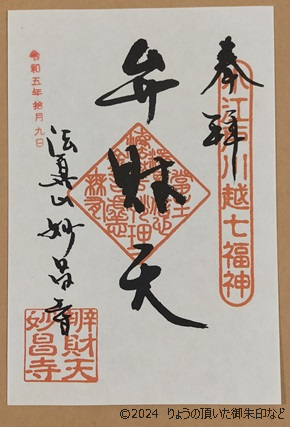 奉拝
小江戸川越七福神
弁財天
法真山妙昌寺
令和五年拾月九日
辨財天
妙昌寺
©2024 りょうの頂いた御朱印など